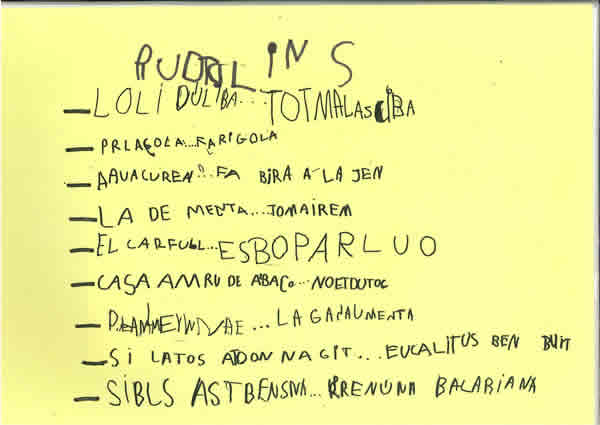 LOLI DULIBA... TOTMALASCIBA
PRLAGOLA...FARIGOLA
AAUACUREN...FA BIRA A LA JEN
LA DE MENTA...JOMAIREM
EL CARFULL...ESBOPARLUO
CASA AMRU DE ABACO...NOETDUTOC
...LA GANAUMENTA
SI LATOS ADONNAGIT...EUCALITUS BEN BUIT
SIBLS ASTBENSNA...RRENUNA BALARIANA